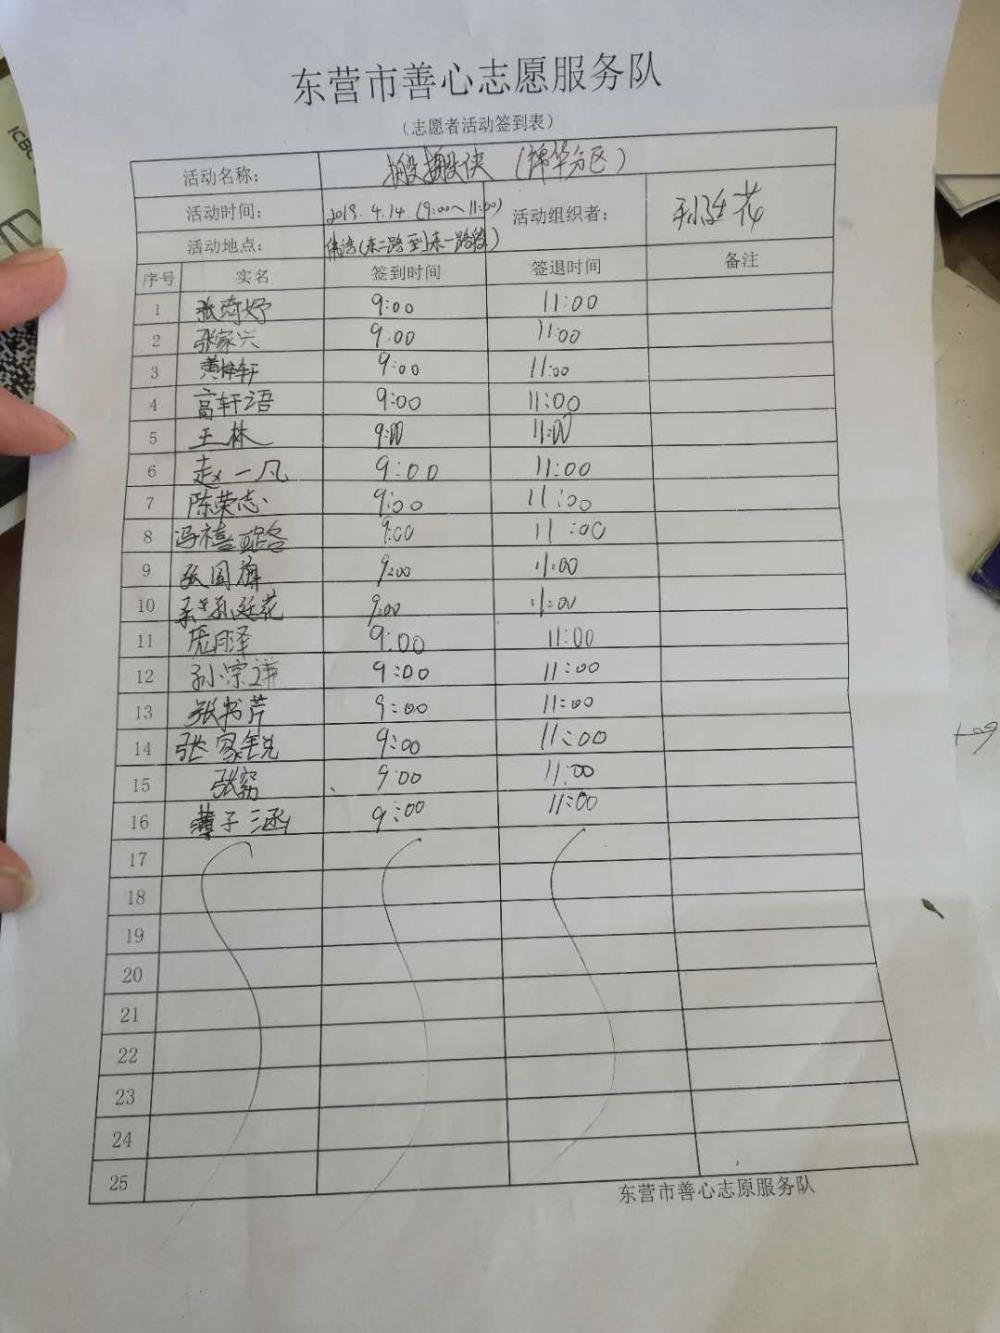 东营市善心志愿服务队
（志愿者活动签到表）
活动名称： 搬搬侠（锦华分区）
活动时间： 2019.4.14（9:00~11:00） 活动组织者： 孙廷花
活动地点： （东二路到东一路段）
序号 实名 签到时间 签退时间 备注
1 张琦妤 9:00 11:00
2 张家兴 9:00 11:00
3 黄梓轩 9:00 11:00
4 高轩语 9:00 11:00
5 王林 9:00 11:00
6 赵一凡 9:00 11:00
7 陈荣志 9:00 11:00
8 冯禧璐 9:00 11:00
9 张国旗 9:00 11:00
10 孙廷花 9:00 11:00
11 9:00 11:00
12 孙淙祎 9:00 11:00
13 张书芹 9:00 11:00
14 张家锐 9:00 11:00
15 张 9:00 11:00
16 子涵 9:00 11:00
17
18
19
20
21
22
23
24
25
东营市善心志原服务队
ICBC